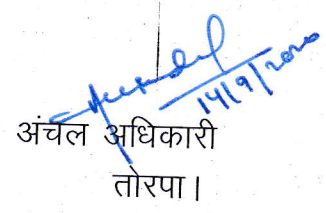 14/9/2020
अंचल अधिकारी
तोरपा।